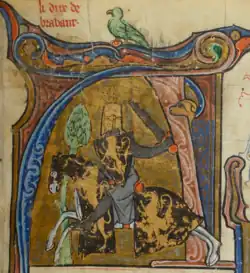 li dux de
brabant.